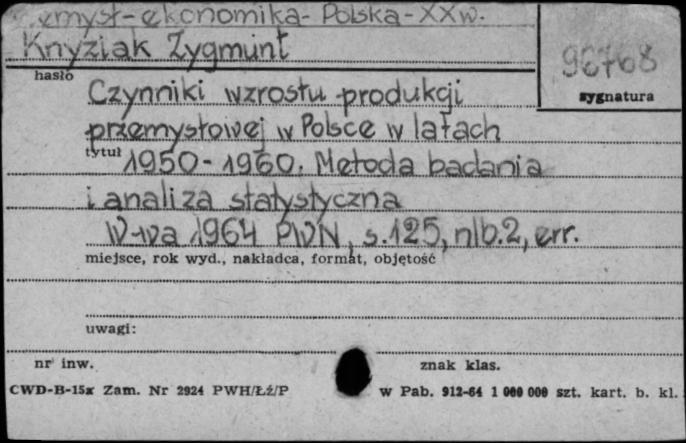 emysł-ekonomika-Polska-XXw.
Knyziak Zygmunt
96768
hasło
sygnatura
Czynniki wzrostu produkcji
przemysłowej w Polsce w latach
tytuł 1950-1960. Metoda badania
i analiza statystyczna
W-wa 1964 PWN, s.125, nlb.2, err.
miejsce, rok wyd., nakładca, format, objętość
uwagi:
nr inw.
znak klas.
CWD-B-15x Zam. Nr 2924 PWH/Łź/P
w Pab. 912-64 1 000 000 szt. kart. b. kl.